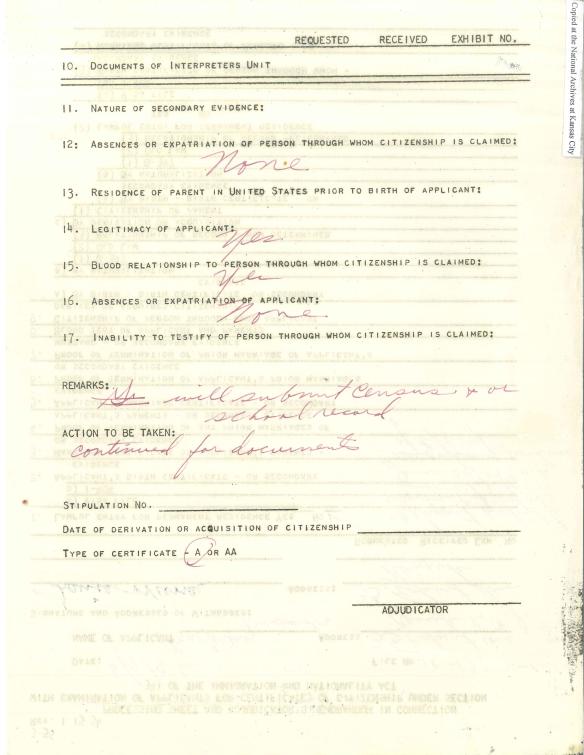 REQUESTED RECEIVED EXHIBIT NO.
10. DOCUMENTS OF INTERPRETERS UNIT
11. NATURE OF SECONDARY EVIDENCE:
12: ABSENCES OR EXPATRIATION OF PERSON THROUGH WHOM CITIZENSHIP IS CLAIMED:
None
13. RESIDENCE OF PARENT IN UNITED STATES PRIOR TO BIRTH OF APPLICANT:
14. LEGITIMACY OF APPLICANT:
Yes
15. BLOOD RELATIONSHIP TO PERSON THROUGH WHOM CITIZENSHIP IS CLAIMED:
Yes
16. ABSENCES OR EXPATRIATION OF APPLICANT:
None
17. INABILITY TO TESTIFY OF PERSON THROUGH WHOM CITIZENSHIP IS CLAIMED:
REMARKS:
will submit Census & or
school record
ACTION TO BE TAKEN:
continued for documents
STIPULATION NO.
DATE OF DERIVATION OR ACQUISITION OF CITIZENSHIP
TYPE OF CERTIFICATE - A OR AA
ADJUDICATOR
Copied at the National Archives at Kansas City